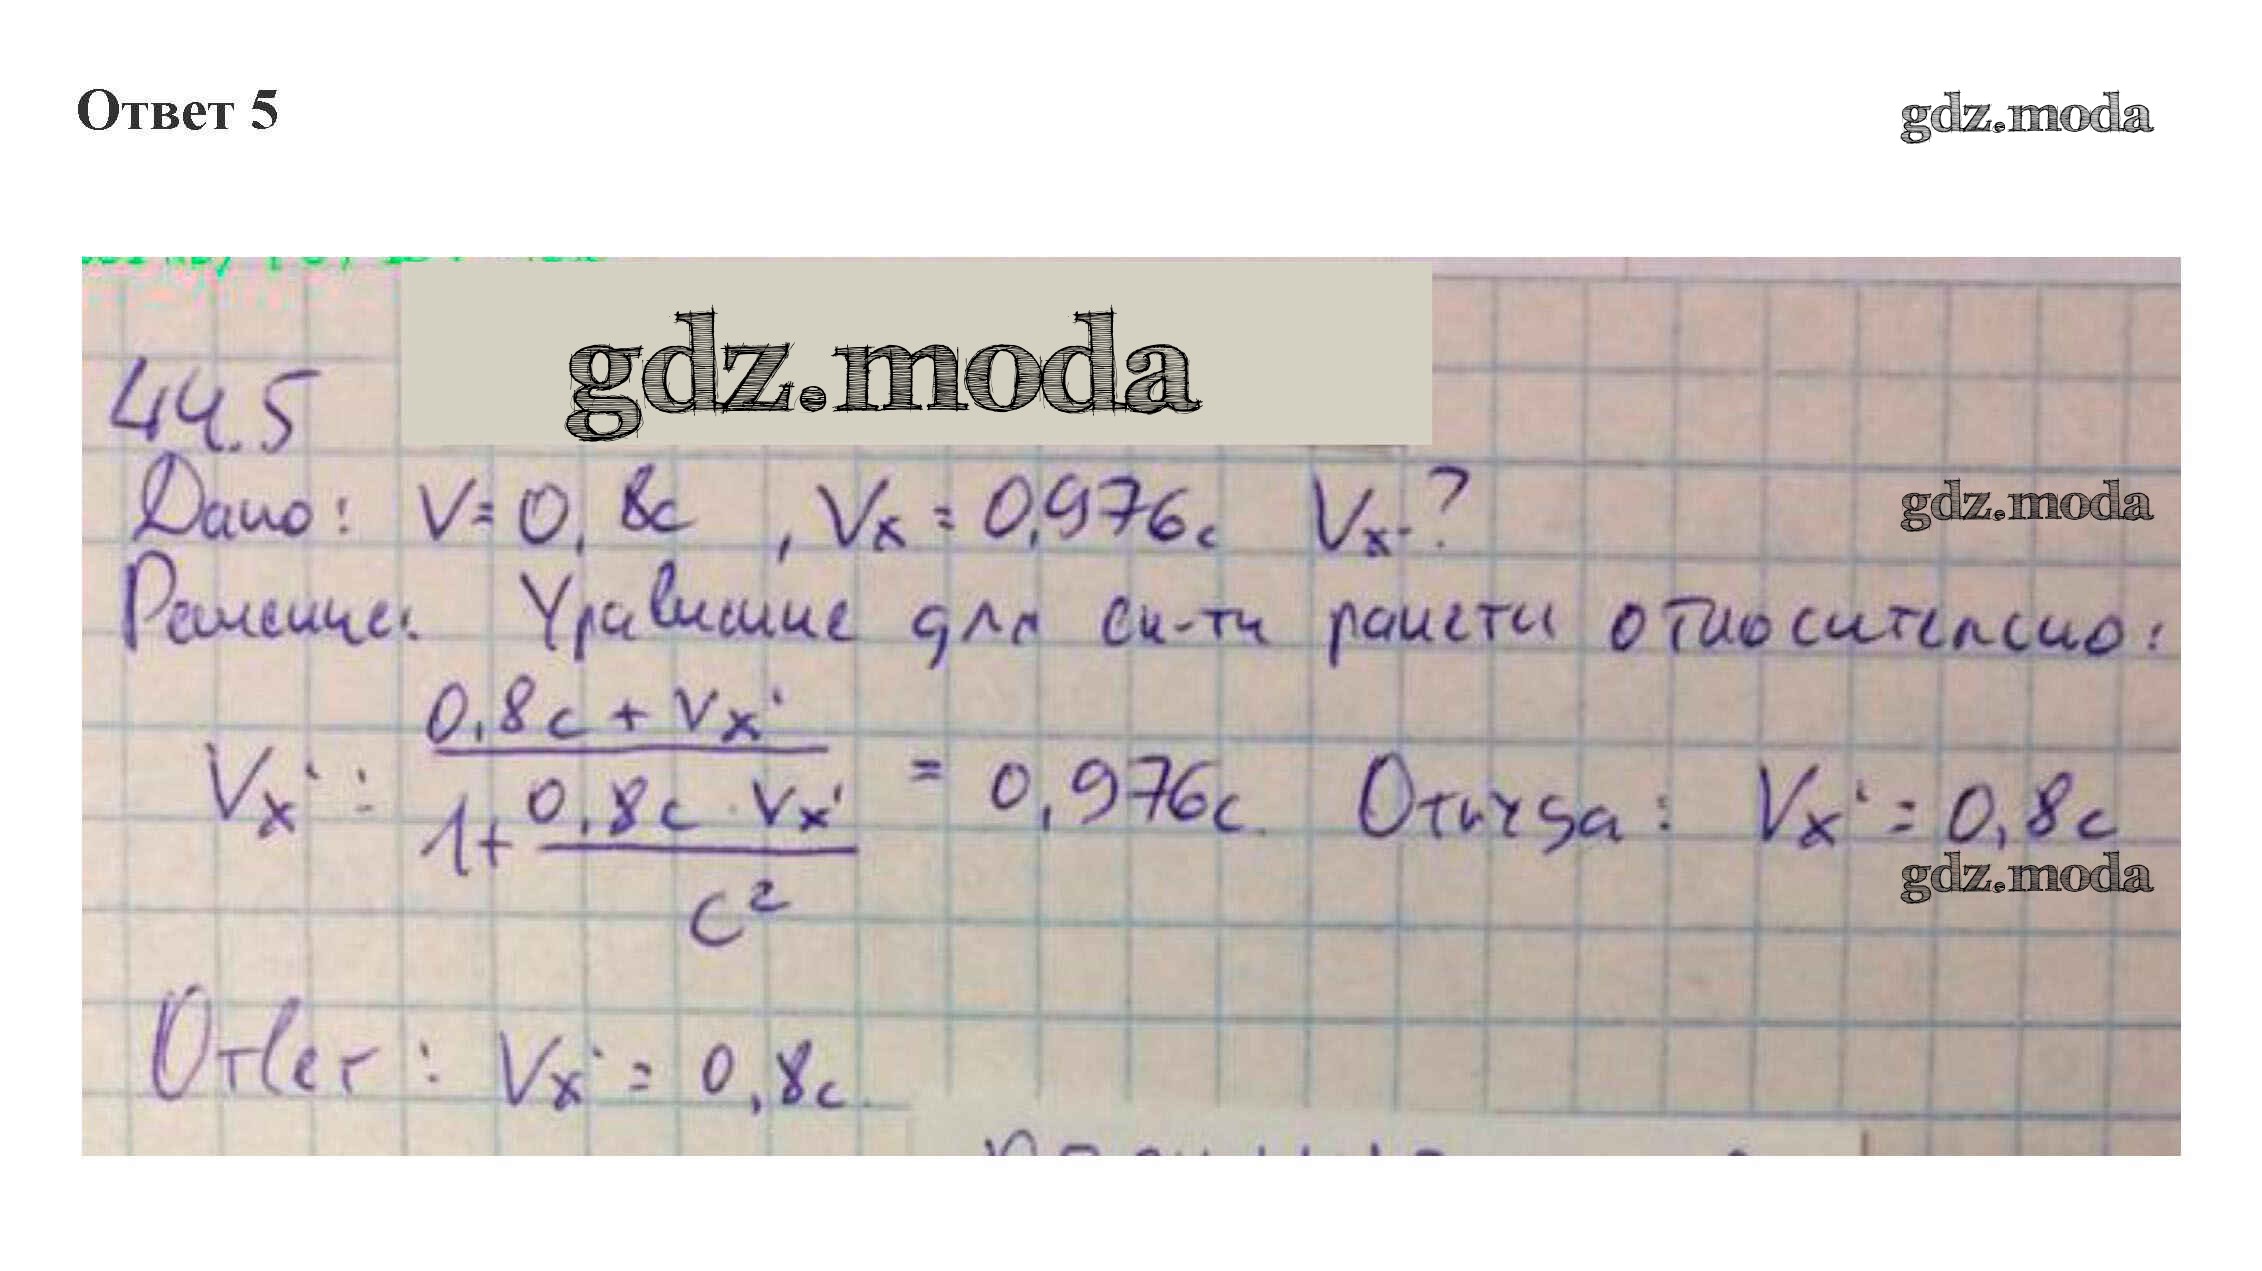 Ответ 5
gdz.moda
gdz.moda
44.5
Дано: V = 0,8c , Vx = 0,976c Vx-?
gdz.moda
Решение: Уравнение для ск-ти ракеты относительно:
Vx' = (0,8c + Vx') / (1 + (0,8c · Vx') / c²) = 0,976c. Откуда: Vx' = 0,8c
gdz.moda
Ответ: Vx' = 0,8c.